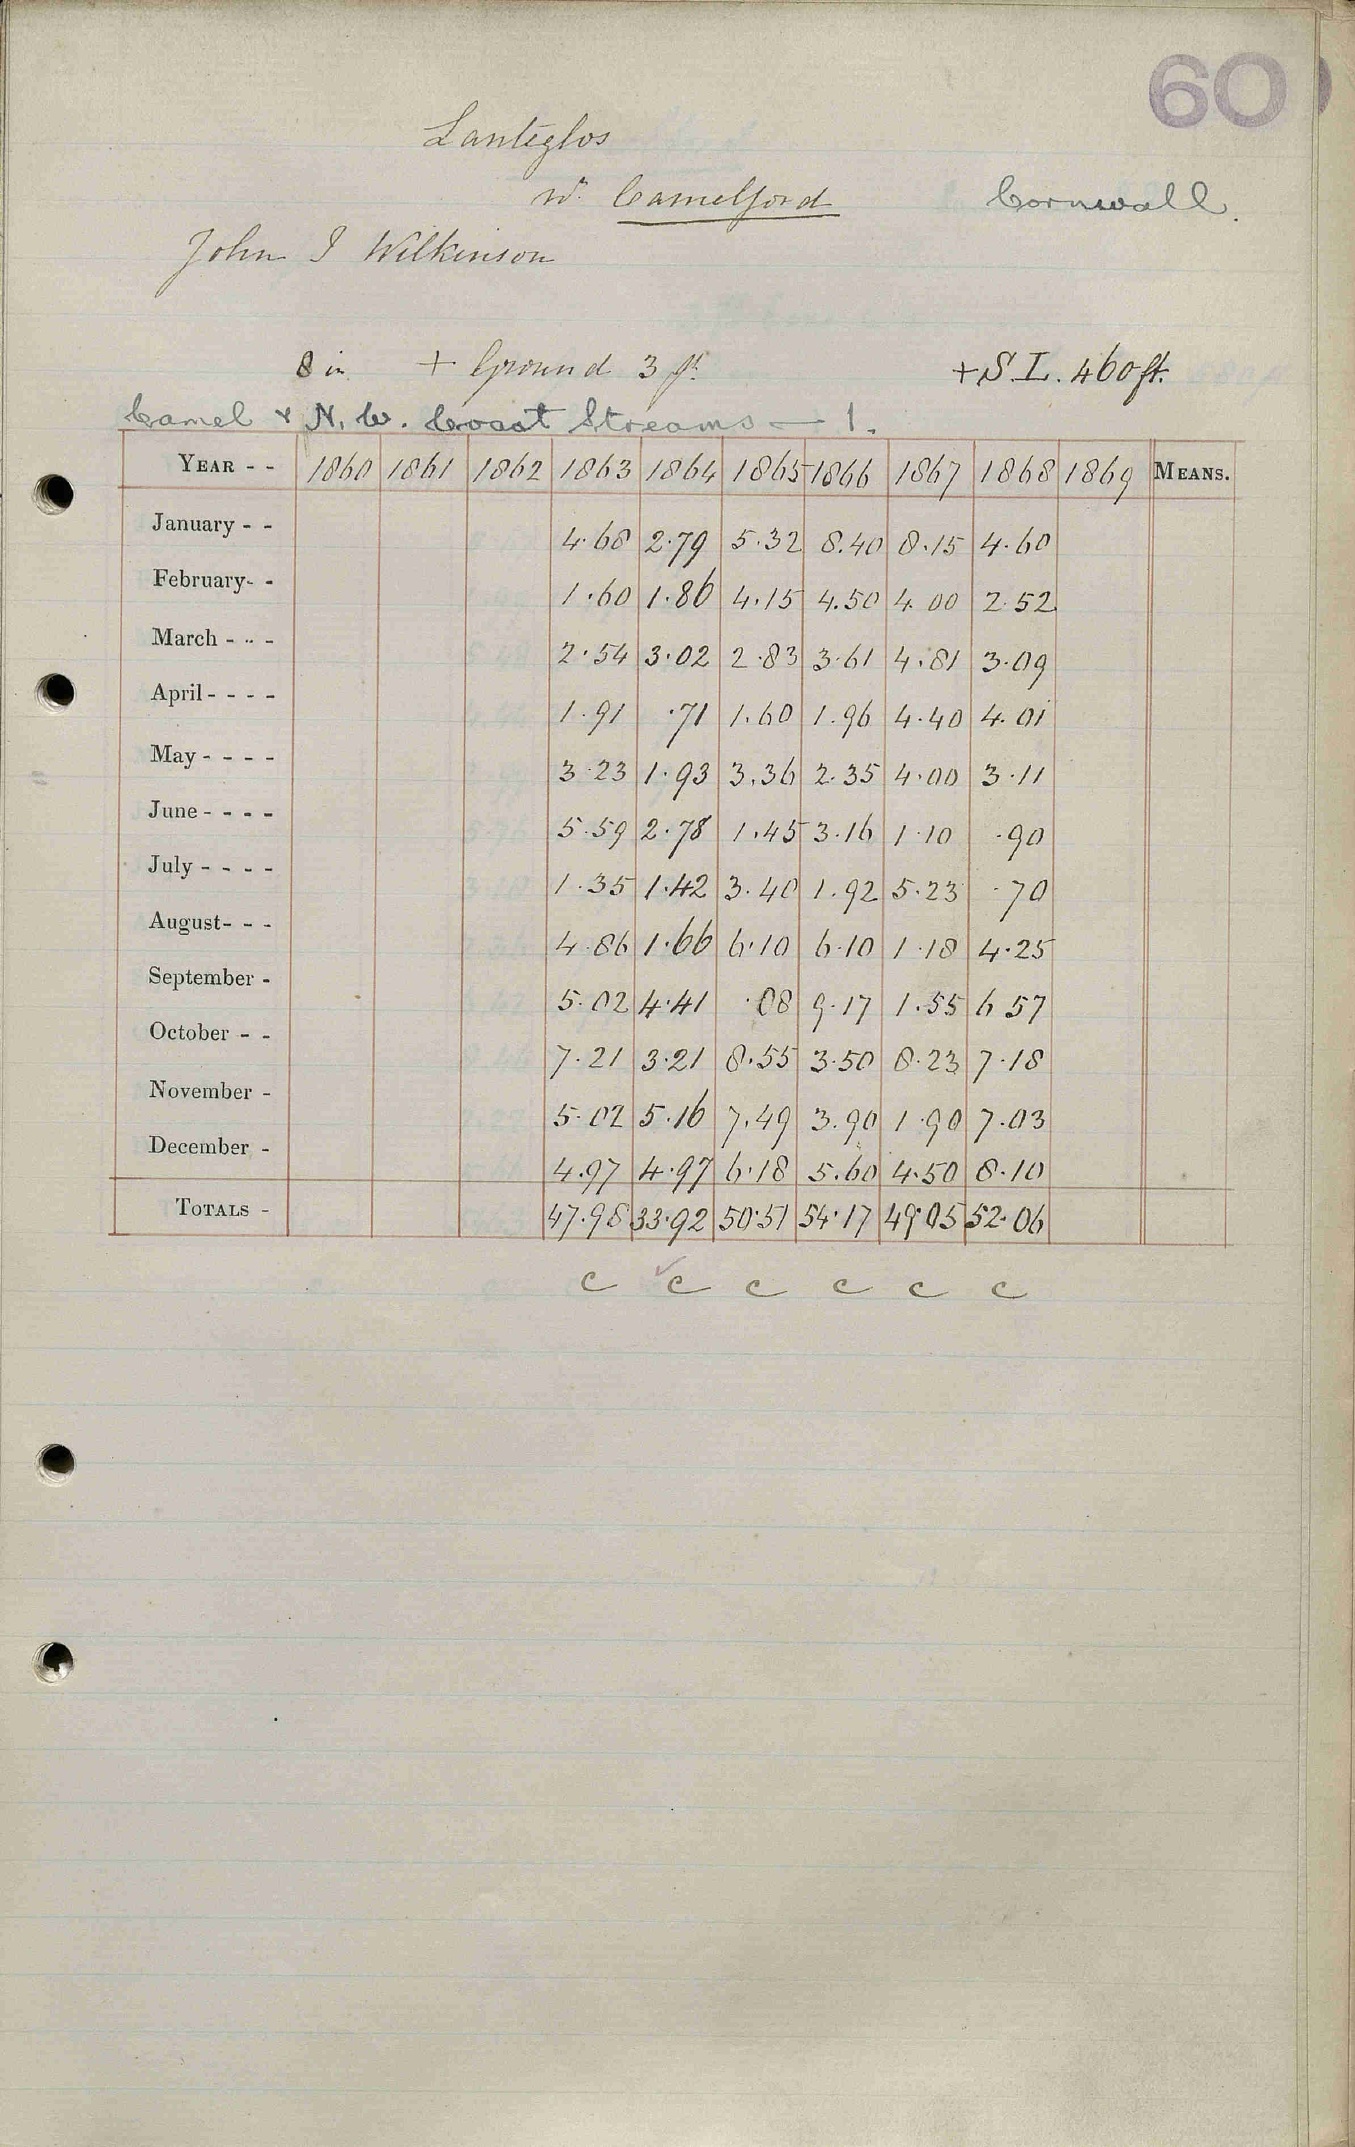 60
Lanteglos
nr. Camelford Cornwall.
John J Wilkinson
8 in + Ground 3 ft + S.L. 460 ft.
Camel & N. W. Coast Streams — 1.
YEAR - - 1860 1861 1862 1863 1864 1865 1866 1867 1868 1869 MEANS.
January - - 4.68 2.79 5.32 8.40 8.15 4.60
February- - 1.60 1.86 4.15 4.50 4.00 2.52
March - - - 2.54 3.02 2.83 3.61 4.81 3.09
April - - - - 1.91 .71 1.60 1.96 4.40 4.01
May - - - - 3.23 1.93 3.36 2.35 4.00 3.11
June - - - - 5.59 2.78 1.45 3.16 1.10 .90
July - - - - 1.35 1.42 3.40 1.92 5.23 .70
August- - - 4.86 1.66 6.10 6.10 1.18 4.25
September - 5.02 4.41 .08 9.17 1.55 6.57
October - - 7.21 3.21 8.55 3.50 8.23 7.18
November - 5.02 5.16 7.49 3.90 1.90 7.03
December - 4.97 4.97 6.18 5.60 4.50 8.10
TOTALS - 47.98 33.92 50.51 54.17 49.05 52.06
c c c c c c